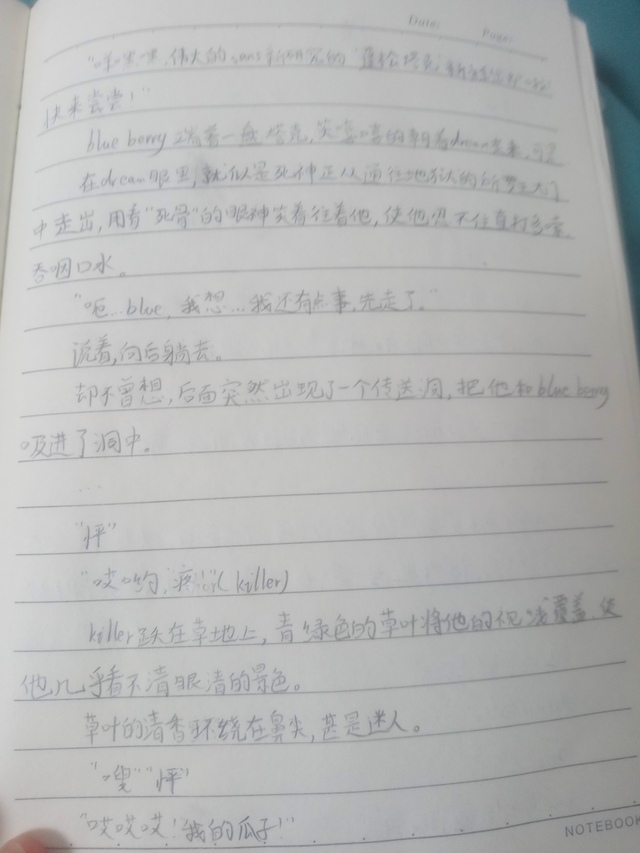 Date: Page:
"嘿嘿嘿,伟大的sans新研究的
快来尝尝!"
blue berry端着一盘塔克,笑嘻嘻的朝着dream走来,可
在dream眼里,就似是死神正从通往地狱的所罗王大门
中走出,用看"死骨"的眼神笑着往着他,使他忍不住直打多嗦,
吞咽口水。
"呃…blue,我想…我还有点事,先走了。"
说着,向后躺去。
却不曾想,后面突然出现了一个传送洞,把他和blue berry
吸进了洞中。
...
"怦"
"哎哟,疼!"(killer)
killer趺在草地上,青绿色的草叶将他的视线覆盖,使
他几乎看不清眼清的景色。
草叶的清香环绕在鼻尖,甚是迷人。
"嗖""怦"
"哎哎哎!我的瓜子!"
NOTEBOOK